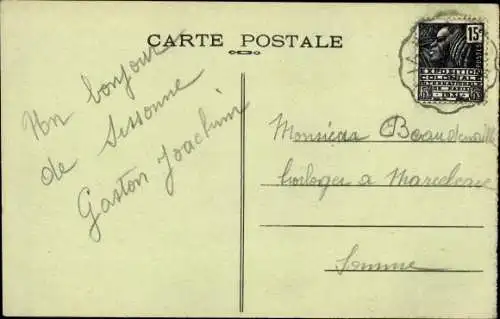 CARTE POSTALE
15c
POSTES
EXPOSITION
COLONIALE
INTERNATIONALE
DE PARIS
1931
Un bonjour
de Sissonne
Gaston Joachim
Monsieur
horloger a
Somme